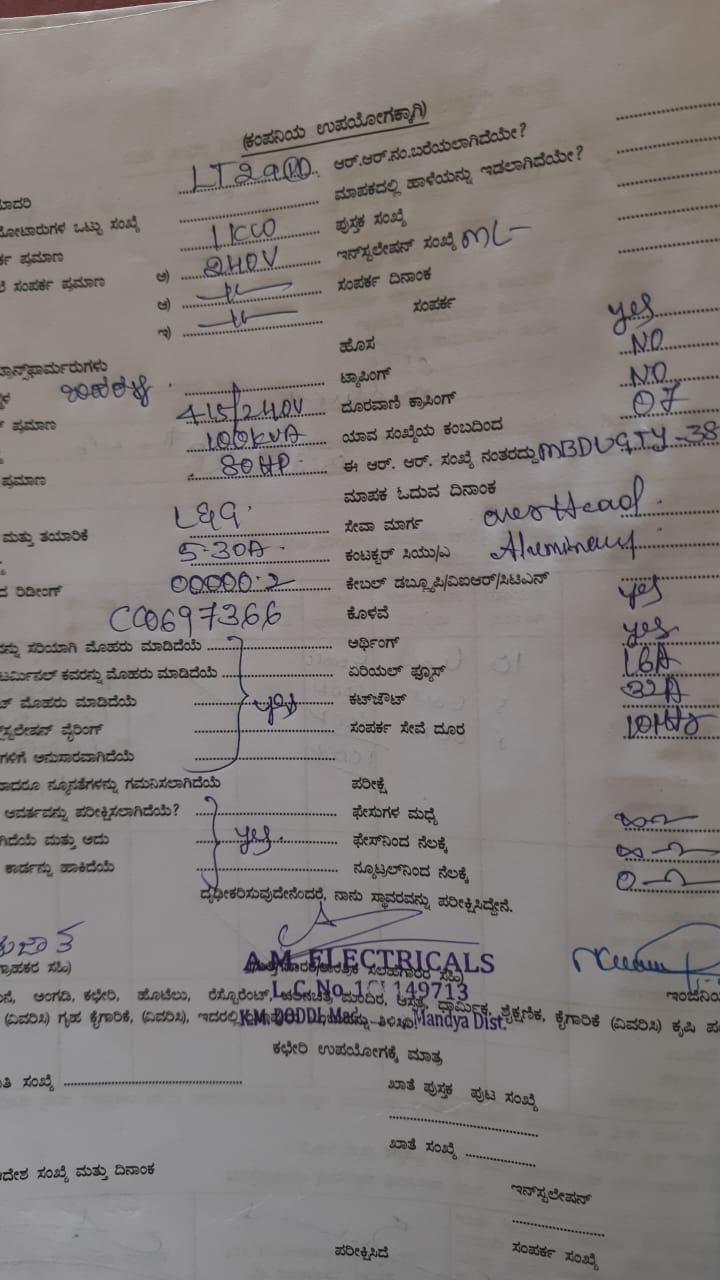 (ಕಂಪನಿಯ ಉಪಯೋಗಕ್ಕಾಗಿ)
LT2a ಆರ್.ಆರ್.ನಂ.ಬರೆಯಲಾಗಿದೆಯೇ?
ಮಾದರಿ ಮಾಪಕದಲ್ಲಿ ಹಾಳೆಯನ್ನು ಇಡಲಾಗಿದೆಯೇ?
ಮೋಟಾರುಗಳ ಒಟ್ಟು ಸಂಖ್ಯೆ 1 KW ಪುಸ್ತಕ ಸಂಖ್ಯೆ
ಪ್ರಮಾಣ ಅ) 240V ಇನ್‌ಸ್ಟಲೇಷನ್ ಸಂಖ್ಯೆ
ಸಂಪರ್ಕ ಪ್ರಮಾಣ ಆ) ಸಂಪರ್ಕ ದಿನಾಂಕ
ಇ) ಸಂಪರ್ಕ
ಟ್ರಾನ್ಸ್‌ಫಾರ್ಮರುಗಳು ಹೊಸ yes
ಟ್ಯಾಪಿಂಗ್ NO
ಪ್ರಮಾಣ 415/240V ದೂರವಾಣಿ ಕ್ರಾಸಿಂಗ್ NO
100KVA ಯಾವ ಸಂಖ್ಯೆಯ ಕಂಬದಿಂದ 07
ಪ್ರಮಾಣ 80HP ಈ ಆರ್. ಆರ್. ಸಂಖ್ಯೆ ನಂತರದ್ದು
ಮಾಪಕ ಓದುವ ದಿನಾಂಕ
ಮತ್ತು ತಯಾರಿಕೆ L&G ಸೇವಾ ಮಾರ್ಗ overHead
5-30A ಕಂಟಕ್ಟರ್ ಸಿಯು/ಎ
ರಿಡೀಂಗ್ 00000.2 ಕೇಬಲ್ ಡಬ್ಲ್ಯೂಪಿ/ವಿಐಆರ್/ಸಿಟಿಎನ್
CC0697366 ಕೊಳವೆ yes
ಸರಿಯಾಗಿ ಮೊಹರು ಮಾಡಿದೆಯೆ ಅರ್ಥಿಂಗ್ yes
ಟರ್ಮಿನಲ್ ಕವರನ್ನು ಮೊಹರು ಮಾಡಿದೆಯೆ ಏರಿಯಲ್ ಫ್ಯೂಸ್ 16A
ಮೊಹರು ಮಾಡಿದೆಯೆ yes ಕಟ್‌ಔಟ್ 32A
ವೈರಿಂಗ್ ಸಂಪರ್ಕ ಸೇವೆ ದೂರ
ಅನುಸಾರವಾಗಿದೆಯೆ
ನ್ಯೂನತೆಗಳನ್ನು ಗಮನಿಸಲಾಗಿದೆಯೆ ಪರೀಕ್ಷೆ
ಆವರ್ತವನ್ನು ಪರೀಕ್ಷಿಸಲಾಗಿದೆಯೆ? ಫೇಸುಗಳ ಮಧ್ಯೆ
ಮತ್ತು ಅದು yes ಫೇಸ್‌ನಿಂದ ನೆಲಕ್ಕೆ
ಕಾರ್ಡನ್ನು ಹಾಕಿದೆಯೆ ನ್ಯೂಟ್ರಲ್‌ನಿಂದ ನೆಲಕ್ಕೆ
ದೃಢೀಕರಿಸುವುದೇನೆಂದರೆ, ನಾನು ಸ್ಥಾವರವನ್ನು ಪರೀಕ್ಷಿಸಿದ್ದೇನೆ.
A.M. ELECTRICALS
ಗ್ರಾಹಕರ ಸಹಿ)
L.C. No. 149713
ಅಂಗಡಿ, ಕಛೇರಿ, ಹೊಟೇಲು, ರೆಸ್ಟೋರೆಂಟ್, ಮಂದಿರ, ಆಸ್ಪತ್ರೆ, ಧಾರ್ಮಿಕ, ಶೈಕ್ಷಣಿಕ, ಕೈಗಾರಿಕೆ (ವಿವರಿಸಿ) ಕೃಷಿ
(ವಿವರಿಸಿ) ಗೃಹ ಕೈಗಾರಿಕೆ, (ವಿವರಿಸಿ), ಇದರಲ್ಲಿ
K.M. DODDI, Mandya Dist.
ಕಛೇರಿ ಉಪಯೋಗಕ್ಕೆ ಮಾತ್ರ
ಸಂಖ್ಯೆ ಖಾತೆ ಪುಸ್ತಕ ಪುಟ ಸಂಖ್ಯೆ
ಖಾತೆ ಸಂಖ್ಯೆ
ಆದೇಶ ಸಂಖ್ಯೆ ಮತ್ತು ದಿನಾಂಕ
ಇನ್‌ಸ್ಟಲೇಷನ್
ಪರೀಕ್ಷಿಸಿದೆ ಸಂಪರ್ಕ ಸಂಖ್ಯೆ